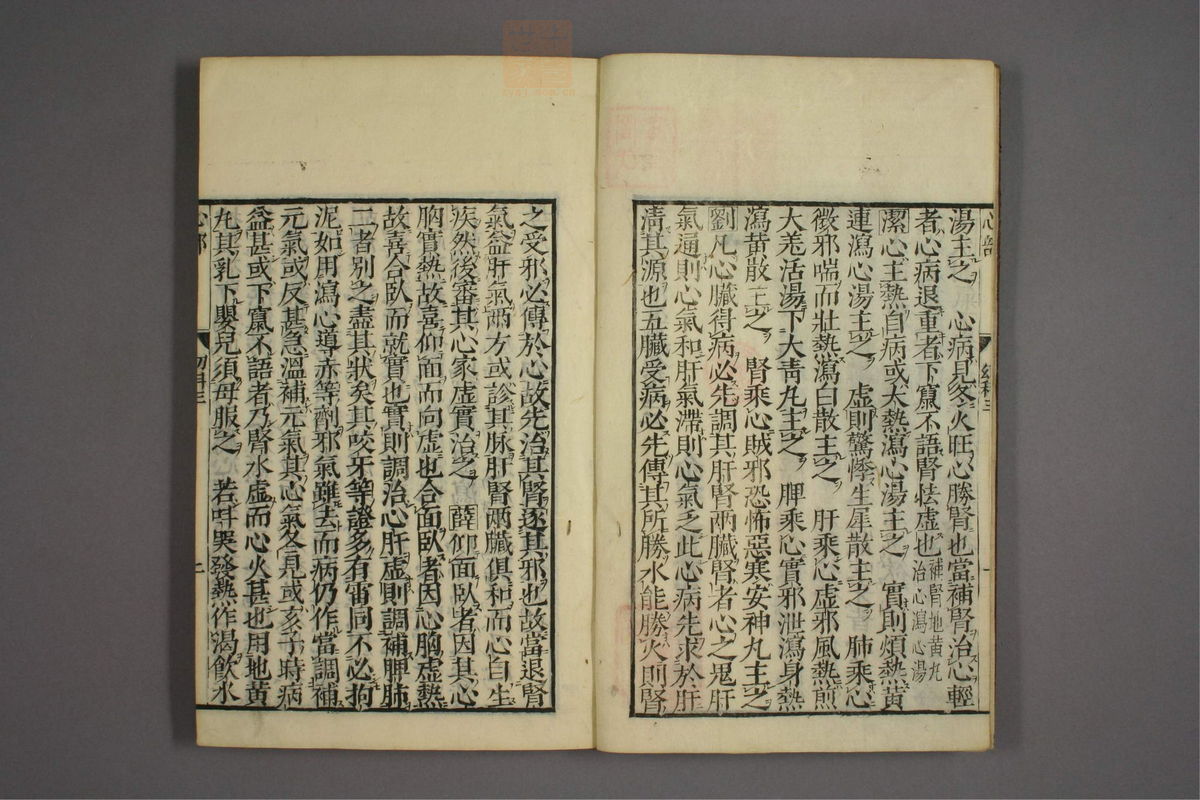 湯主之　心病見冬火旺心勝腎也當補腎治心輕
者心病退重者下竄不語腎怯虛也補腎地黃丸治心瀉心湯
潔心主熱自病或大熱瀉心湯主之　實則煩熱黃
連瀉心湯主之　虛則驚悸生犀散主之　肺乘心
微邪喘而壯熱瀉白散主之　肝乘心虛邪風熱煎
大羗活湯下大青丸主之　脾乘心實邪泄瀉身熱
瀉黃散主之　腎乘心賊邪恐怖惡寒安神丸主之
劉凡心臟得病必先調其肝腎兩臟腎者心之鬼肝
氣通則心氣和肝氣滯則心氣乏此心病先求於肝
清其源也五臟受病必先傳其所勝水能勝火則腎
之受邪必傳於心故先治其腎逐其邪也故當退腎
氣益肝氣兩方或診其脉肝腎兩臟俱和而心自生
疾然後審其心家虛實治之　薛仰面臥者因其心
胸實熱故喜仰面而向虛也合面臥者因心胸虛熱
故喜合臥而就實也實則調治心肝虛則調補脾肺
二者別之盡其狀矣其咬牙等證多有雷同不必拘
泥如用瀉心導赤等劑邪氣雖去而病仍作當調補
元氣或反甚急溫補元氣其心氣冬見或亥子時病
益甚或下竄不語者乃腎水虛而心火甚也用地黃
丸其乳下嬰兒須母服之　若呌哭發熱作渴飲水
心部　幼科三　二